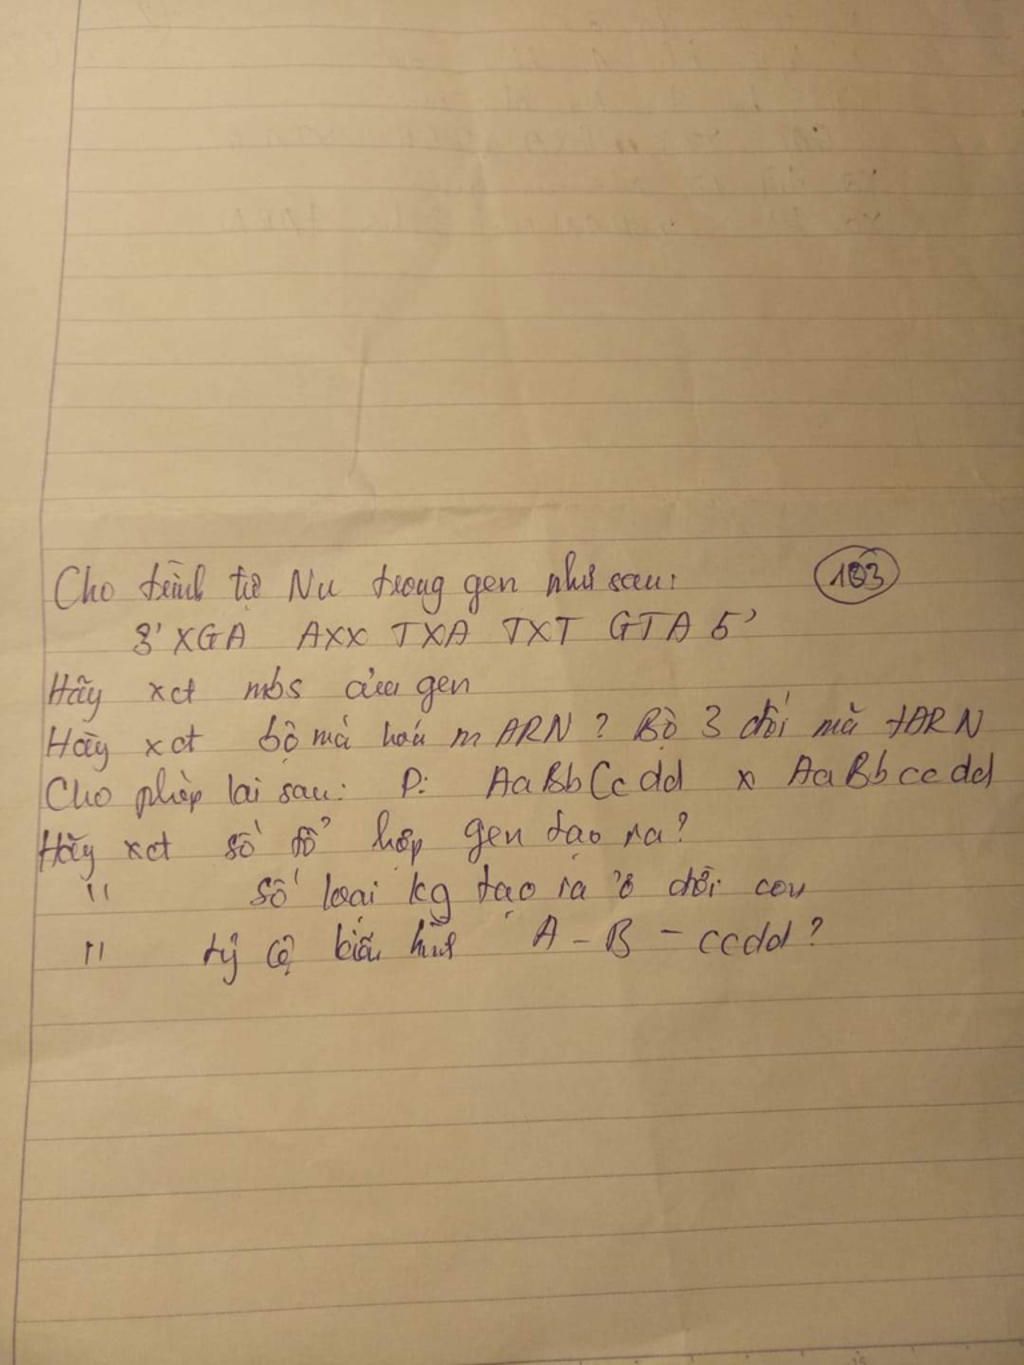 Cho trình tự Nu trong gen như sau: 103
3' XGA AXX TXA TXT GTA 5'
Hãy xđ mbs của gen
Hãy xđ bộ mã hoá mARN? Bộ 3 đối mã tARN
Cho phép lai sau: P: AaBbCcdd x AaBbccdd
Hãy xđ số tổ hợp gen tạo ra?
" số loại kg tạo ra ở đời con
" tỷ lệ kiểu hình A-B-ccdd?